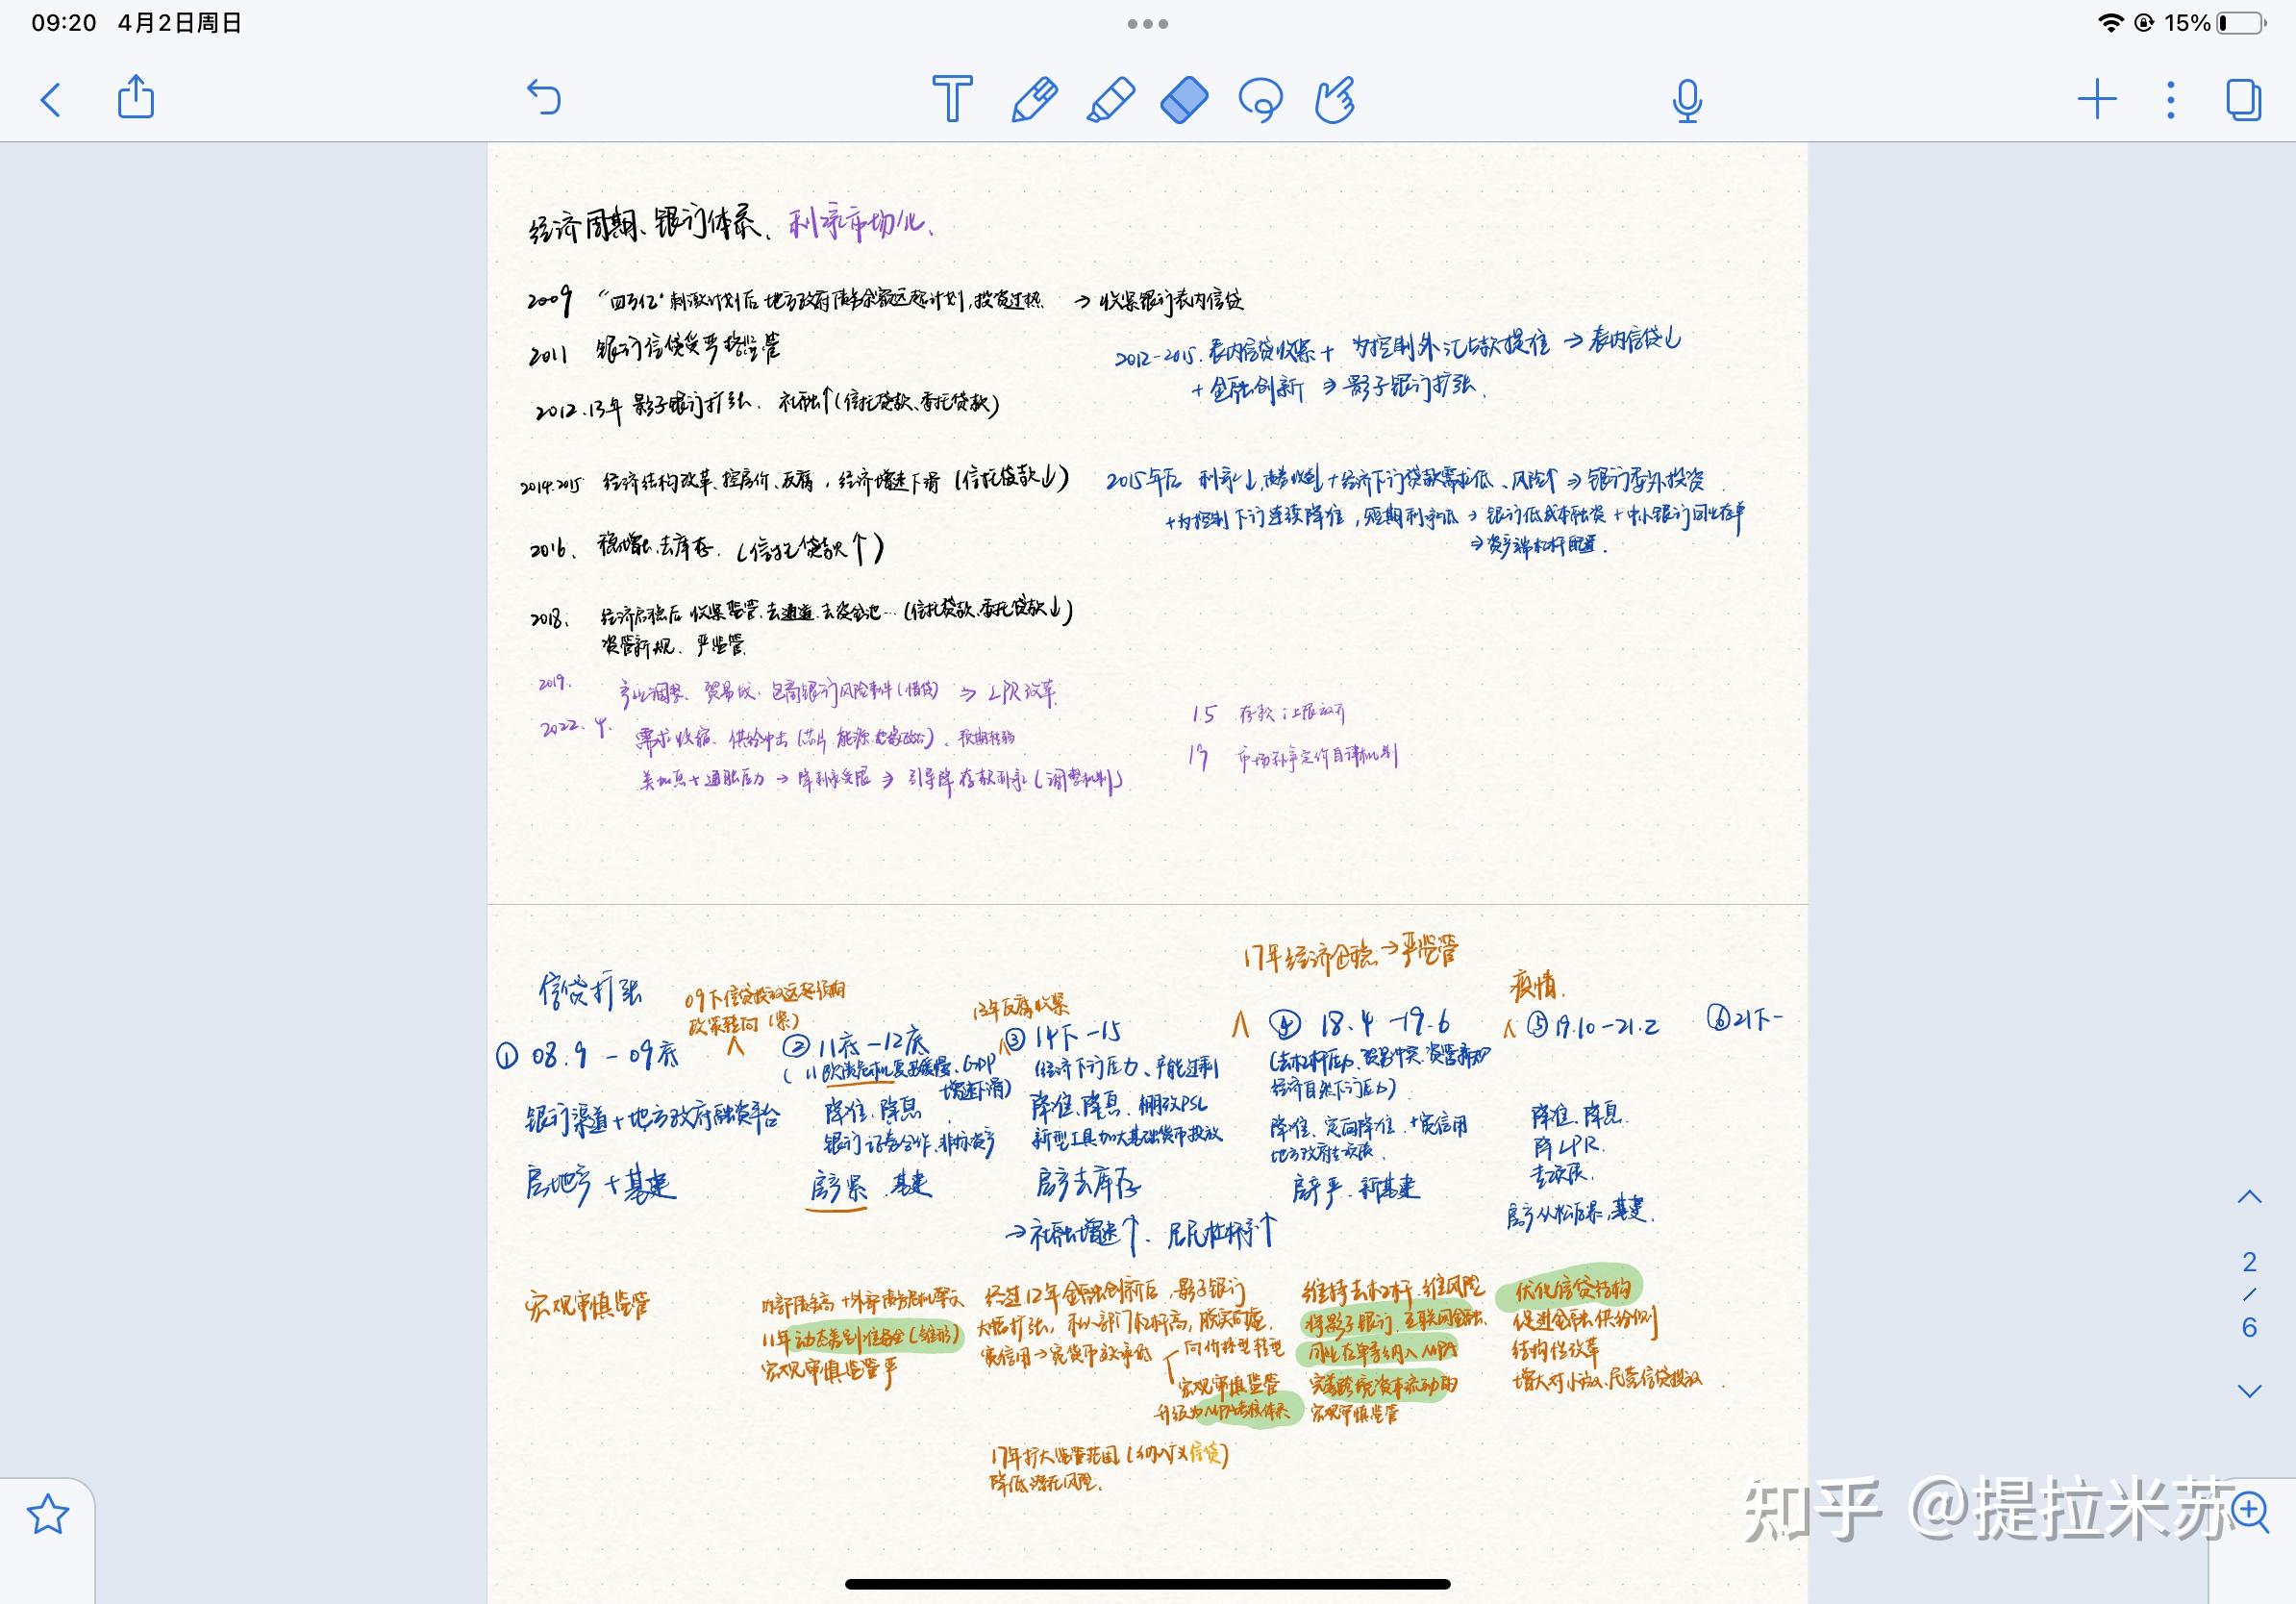 09:20 4月2日周日
15%
经济周期、银行体系、利率市场化、
2009 "四万亿"刺激计划后 地方政府债务余额远超计划,投资过热 → 收紧银行表内信贷
2011 银行信贷受严格监管
2012-2015. 表内信贷收紧 + 为控制外汇占款提准 → 表内信贷↓
+ 金融创新 ⇒ 影子银行扩张.
2012.13年 影子银行扩张. 社融↑(信托贷款、委托贷款)
2014.2015 经济结构改革、控房价、反腐, 经济增速下滑 (信托贷款↓)
2015年后 利率↓, +经济下行贷款需求低、风险↑ ⇒ 银行委外投资
+为控制下行连续降准, 短期利率低 → 银行低成本融资 + 中小银行同业存单
⇒ 资产端杠杆配置.
2016、 稳增长、去库存. (信托贷款↑)
2018、 经济启稳后 收紧监管、去通道、去资金池… (信托贷款、委托贷款↓)
资管新规、严监管
2019. 产业调整、贸易战、包商银行风险事件(惜贷) ⇒ LPR改革.
2022.4. 需求收缩、供给冲击(芯片、能源、)、预期转弱
美加息+通胀压力 → 降利率受限 ⇒ 引导降存款利率(调整机制)
15 存款上限放开
19 市场利率定价自律机制
17年经济企稳→严监管
信贷扩张
09下信贷投放远超预期
政策转向(紧)
13年反腐收紧
疫情.
① 08.9 - 09底
② 11底-12底
③ 14下-15
④ 18.4-19.6
⑤ 19.10-21.2
⑥ 21下-
(11欧债危机复苏缓慢、GDP
增速下滑)
(经济下行压力、产能过剩
(去杠杆压力、贸易冲突、资管新规
经济自然下行压力)
银行渠道+地方政府融资平台
降准、降息
银行证券合作、非标资产
降准、降息、棚改PSL
新型工具加大基础货币投放
降准、定向降准、+宽信用
地方政府专项债.
降准、降息.
降LPR.
专项债.
房地产+基建
房产紧、基建
房产去库存
房产严、新基建
房产从松后紧、基建.
→社融增速↑. 居民杠杆率↑
宏观审慎监管
内部债务高+外部债务危机警示
11年动态差别准备金(雏形)
宏观审慎监管严
经过12年金融创新后,影子银行
大幅扩张, 私人部门杠杆高, 脱实向虚.
宽信用→宽货币效率低
向价格型转型
宏观审慎监管
升级为MPA考核体系
17年扩大监管范围(纳入广义信贷)
降低潜在风险.
维持去杠杆、维风险
将影子银行、互联网金融、
同业存单等纳入MPA
完善跨境资本流动的
宏观审慎监管
优化信贷结构
促进金融供给侧
结构性改革
增大对小微、民营信贷投放
2
6
知乎 @提拉米苏